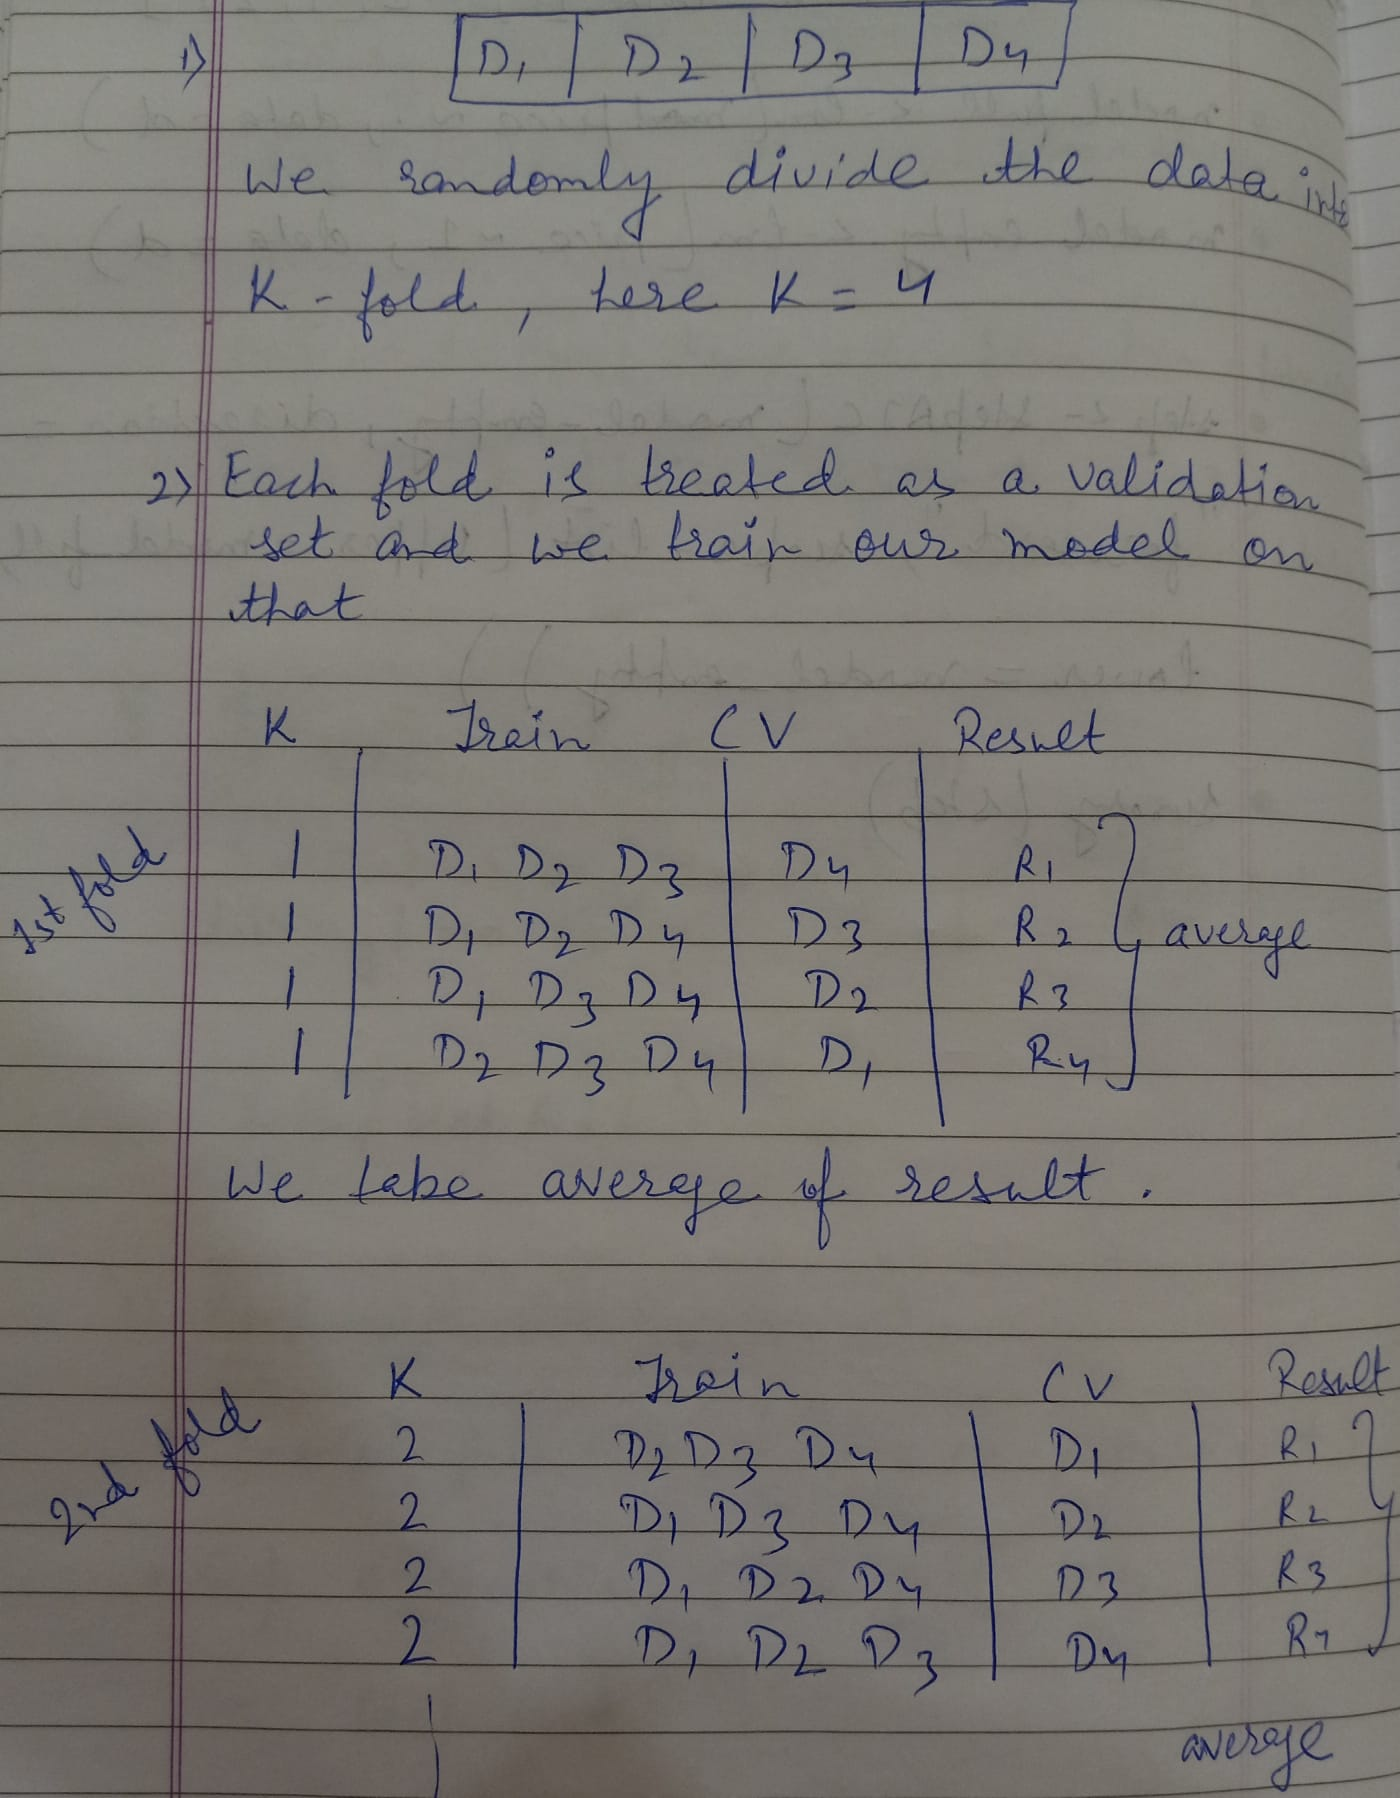 1) D1 | D2 | D3 | D4
We randomly divide the data into
K-fold, here K = 4
2) Each fold is treated as a validation
set and we train our model on
that
K Train CV Result
1st fold
1 D1 D2 D3 D4 R1
1 D1 D2 D4 D3 R2 average
1 D1 D3 D4 D2 R3
1 D2 D3 D4 D1 R4
We take average of result.
K Train CV Result
2nd fold
2 D2 D3 D4 D1 R1
2 D1 D3 D4 D2 R2
2 D1 D2 D4 D3 R3
2 D1 D2 D3 D4 R4
average